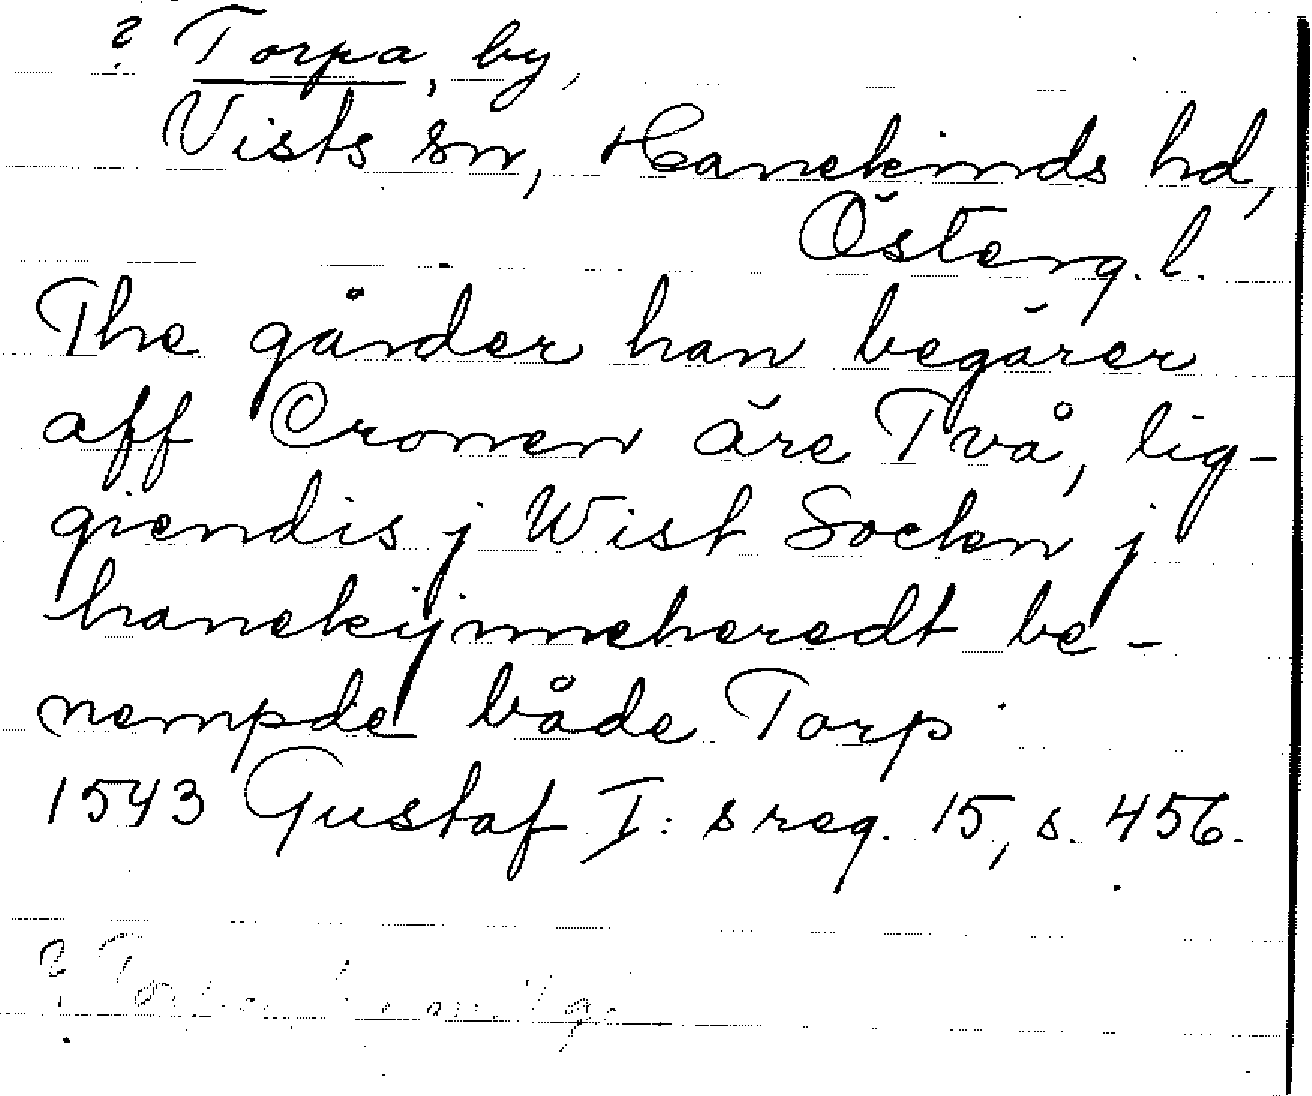 ? Torpa, by,
Vists sn, Hanekinds hd,
Österg. l.
The gårder han begärer
aff Cronen äre Två, lig-
giendis j Wist Socken j
hanekijnneheredt be-
nempde både Torp
1543 Gustaf I: s reg. 15, s. 456.
? Torpa